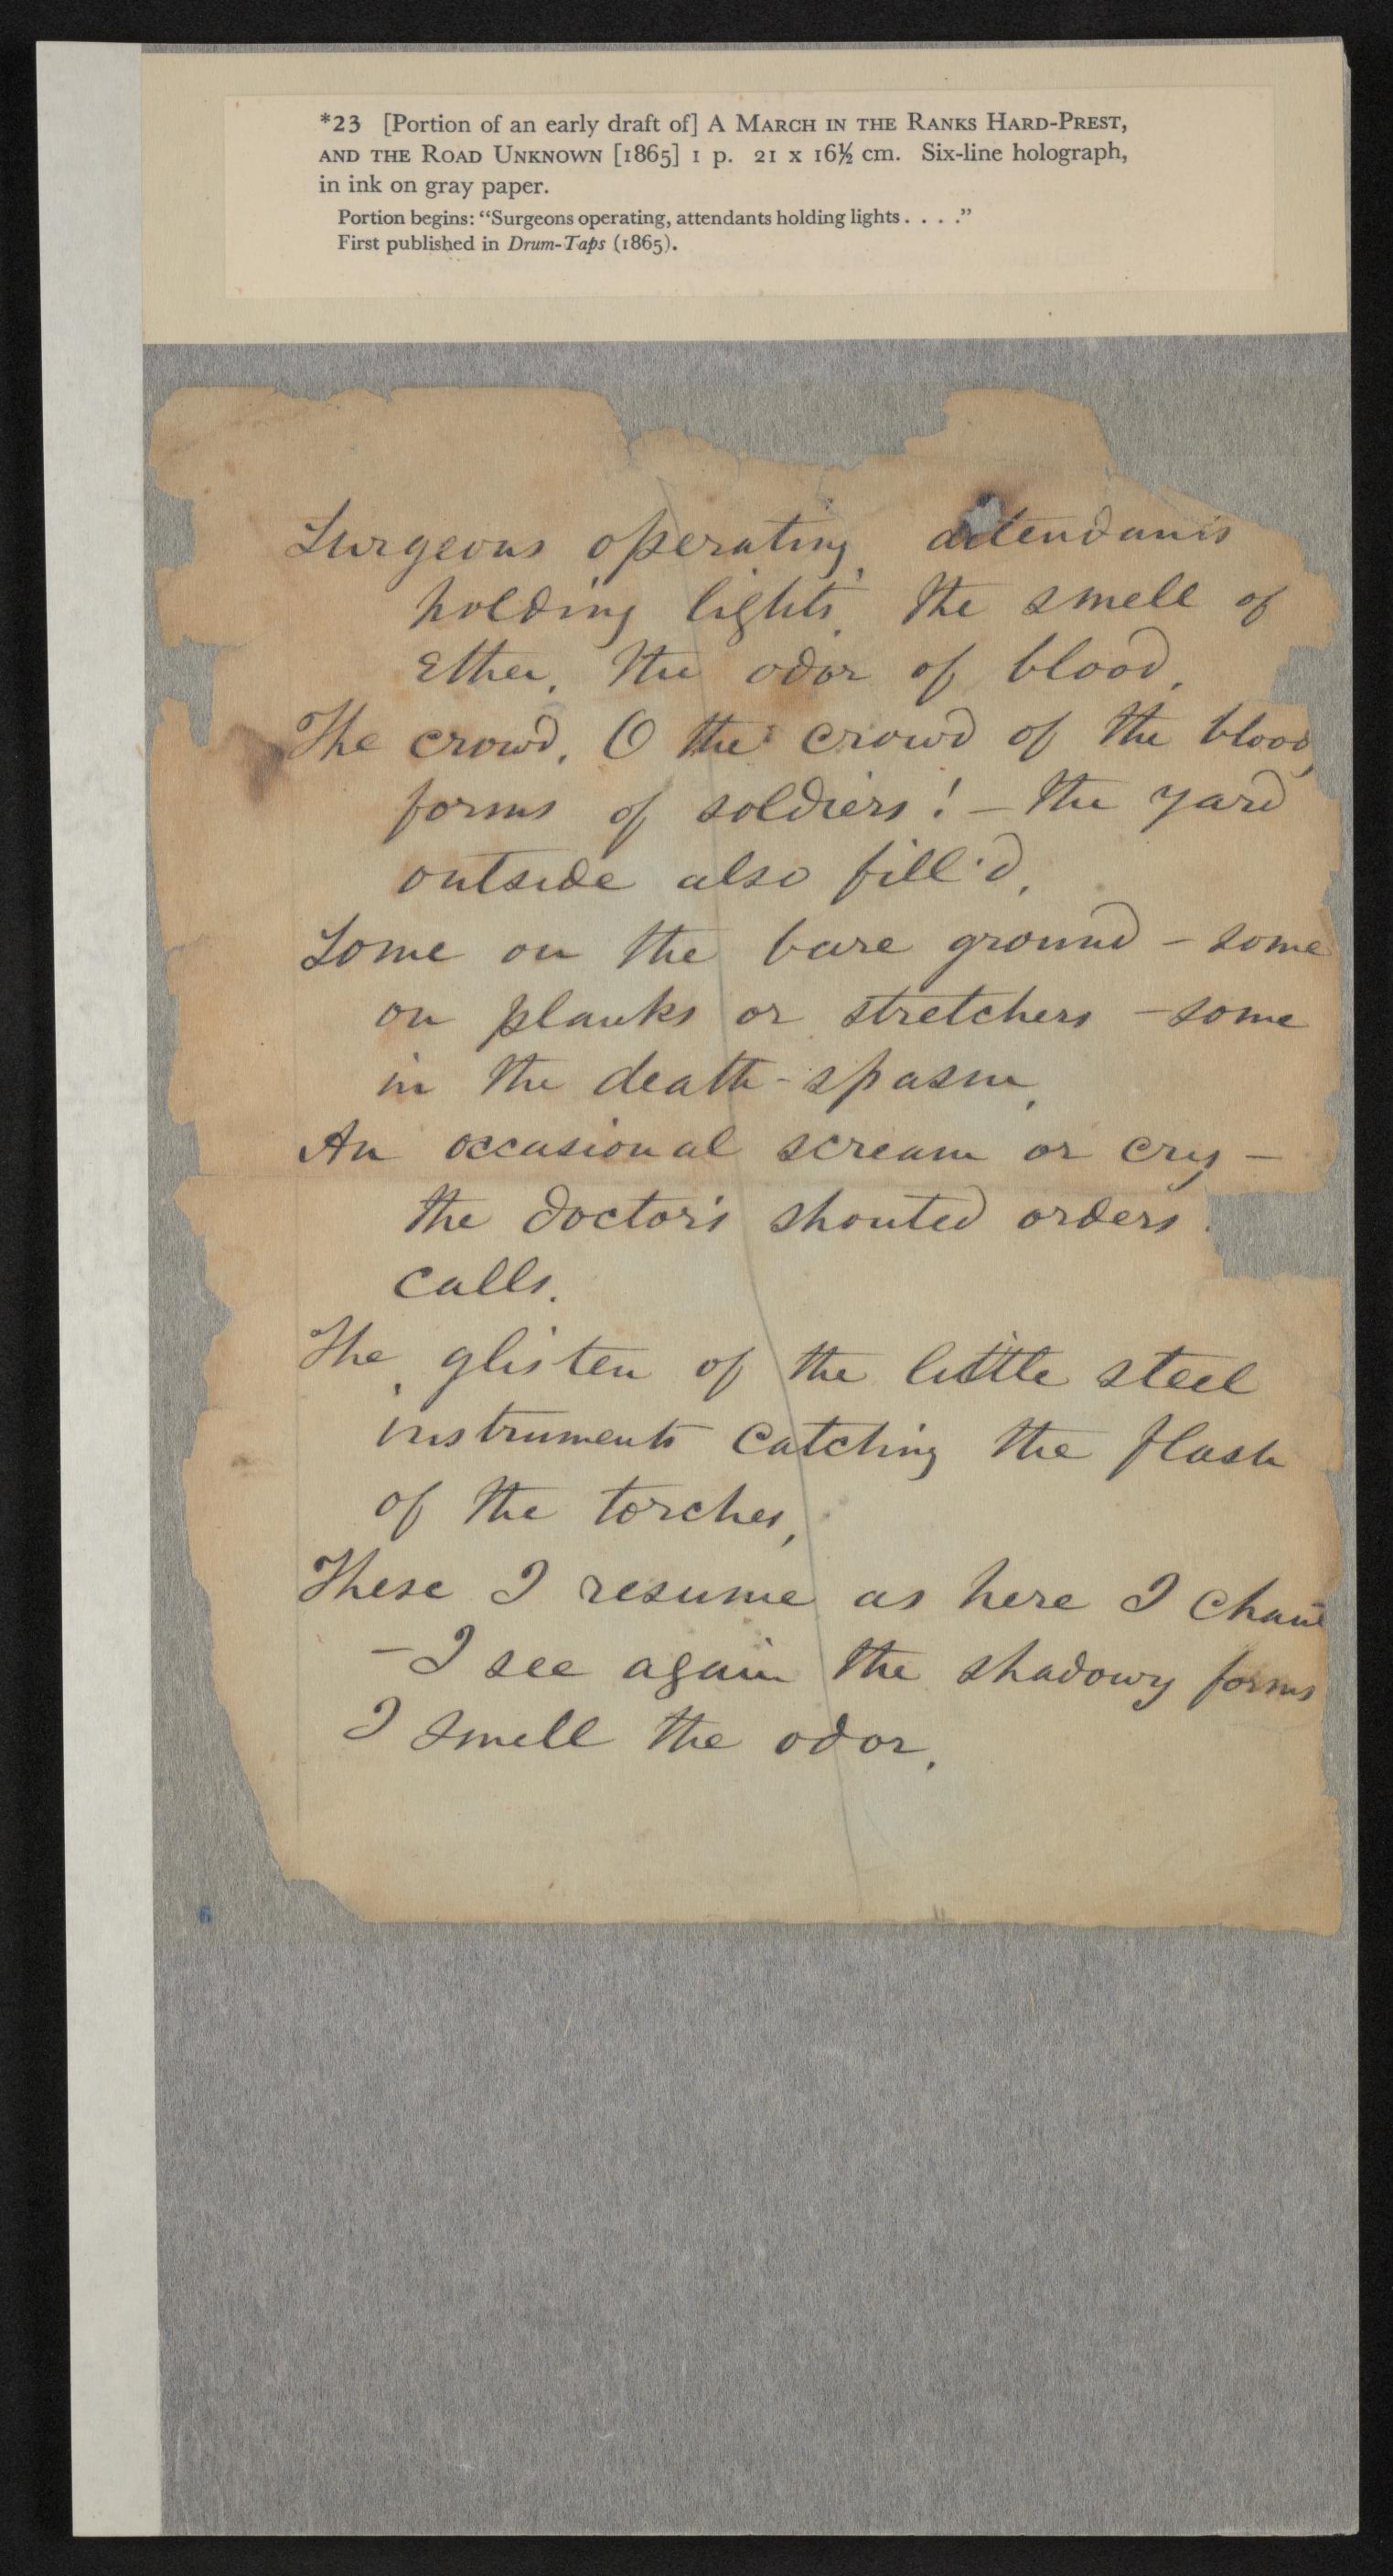 *23 [Portion of an early draft of] A MARCH IN THE RANKS HARD-PREST,
AND THE ROAD UNKNOWN [1865] 1 p. 21 x 16½ cm. Six-line holograph,
in ink on gray paper.
Portion begins: “Surgeons operating, attendants holding lights . . . .”
First published in Drum-Taps (1865).
Surgeons operating, attendants
holding lights, the smell of
ether, the odor of blood,
The crowd, O the crowd of the bloody
forms of soldiers! – the yard
outside also fill'd,
Some on the bare ground – some
on planks or stretchers – some
in the death-spasm,
An occasional scream or cry –
the doctor's shouted orders
calls,
The glisten of the little steel
instruments catching the flash
of the torches,
These I resume as here I chant
– I see again the shadowy forms
I smell the odor,
6